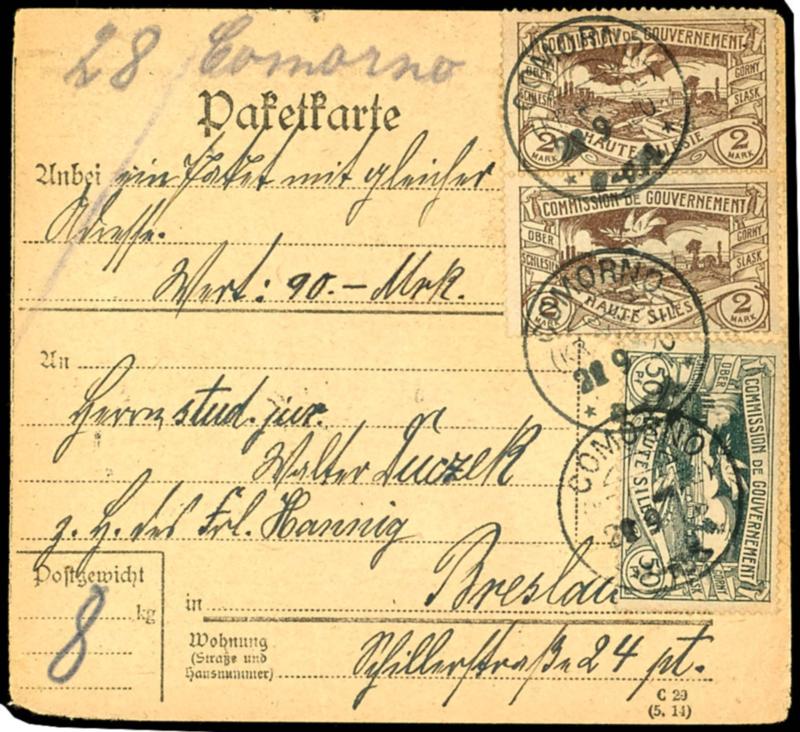 28 Comorno
Paketkarte
Anbei ein Paket mit gleicher
Adresse.
Wert: 90.– Mrk.
An
Herrn stud. jur.
Walter Duczek
z. H. des Frl. Hannig
Postgewicht
8 kg
in Breslau
Wohnung
(Straße und
Hausnummer)
Schillerstraße 24 pt.
C 29
(5. 14)
COMMISSION DE GOUVERNEMENT
OBER SCHLESIEN
GORNY SLASK
2 MARK HAUTE SILESIE 2 MARK
COMORNO
COMMISSION DE GOUVERNEMENT
OBER SCHLESIEN
GORNY SLASK
2 MARK HAUTE SILES 2 MARK
COMORNO
COMMISSION DE GOUVERNEMENT
OBER
GORNY SLASK
50 Pf HAUTE SILE 50 Pf
COMORNO